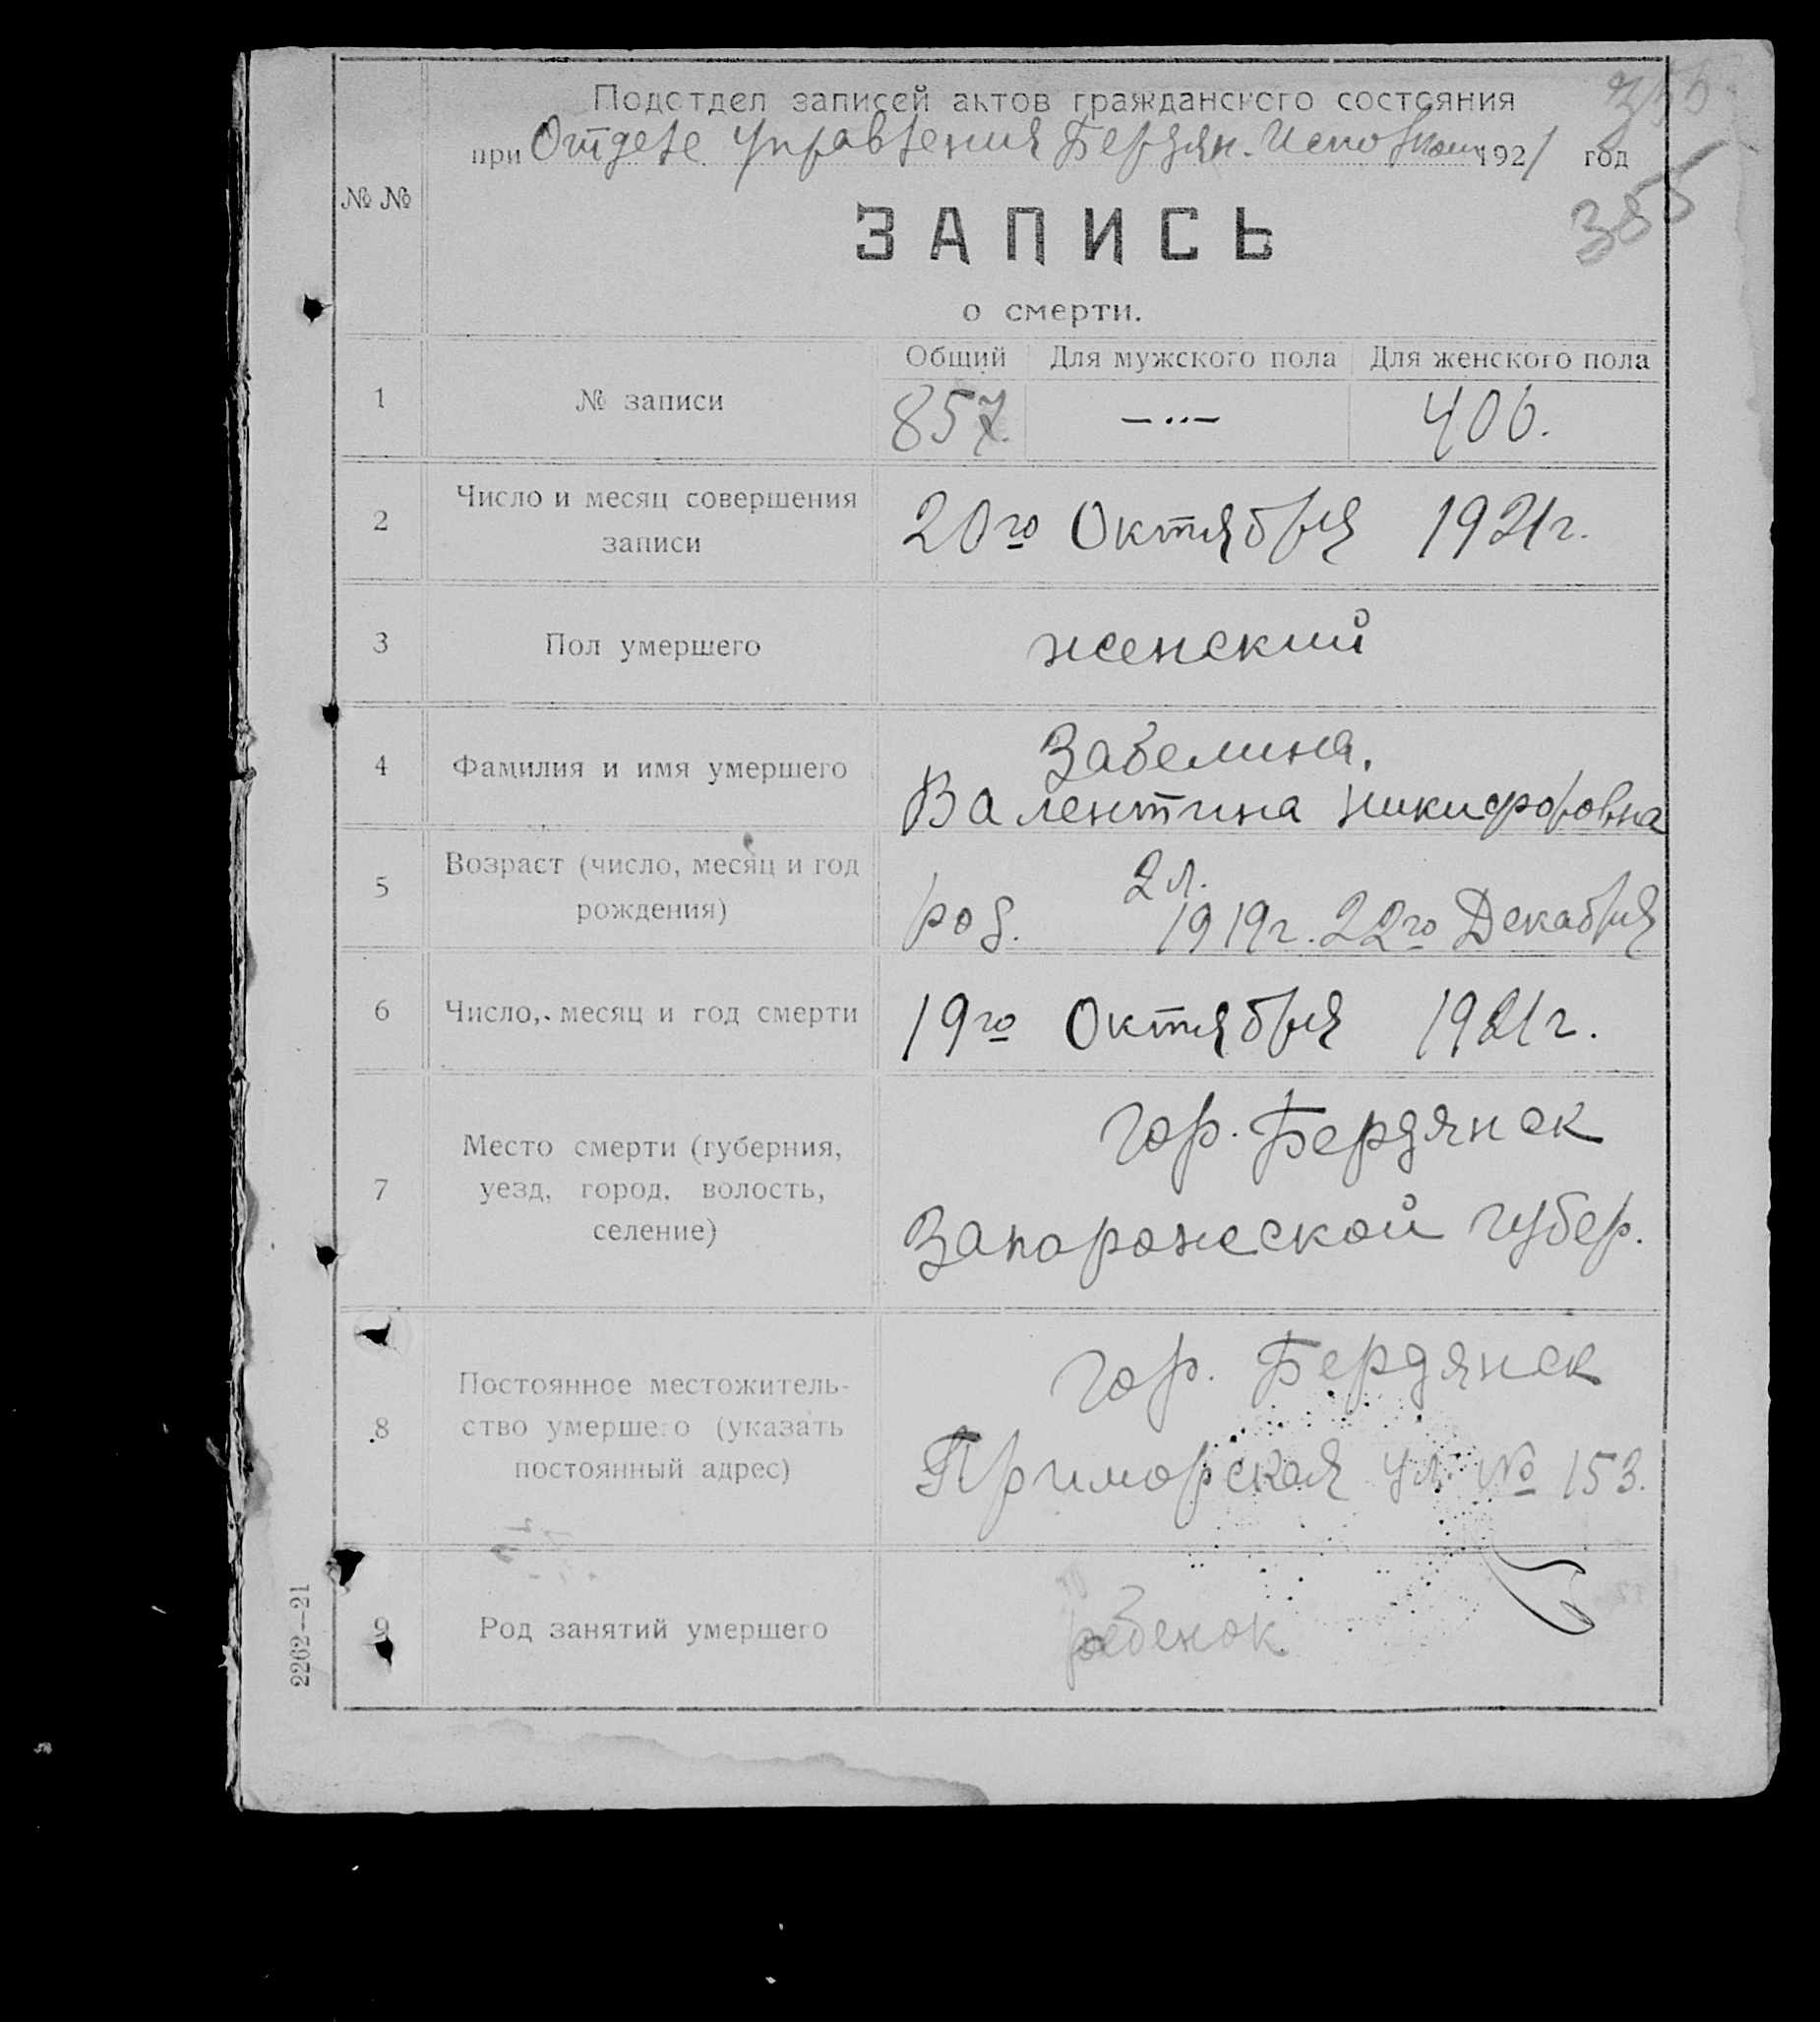 Подотдел записей актов гражданского состояния
при Отделе Управления Бердян. Исполком 1921 год
355
№ №
ЗАПИСЬ
о смерти.
Общий Для мужского пола Для женского пола
1 № записи 857. —··— 406.
2 Число и месяц совершения записи 20го Октября 1921г.
3 Пол умершего женский
4 Фамилия и имя умершего Забелина,
Валентина Никифоровна
5 Возраст (число, месяц и год рождения) 2 л.
род. 1919г. 22го Декабря
6 Число, месяц и год смерти 19го Октября 1921г.
7 Место смерти (губерния, уезд, город, волость, селение) гор. Бердянск
Запорожской губер.
8 Постоянное местожитель-
ство умершего (указать постоянный адрес) гор. Бердянск
Приморская ул. № 153.
9 Род занятий умершего ребенок
2262—21